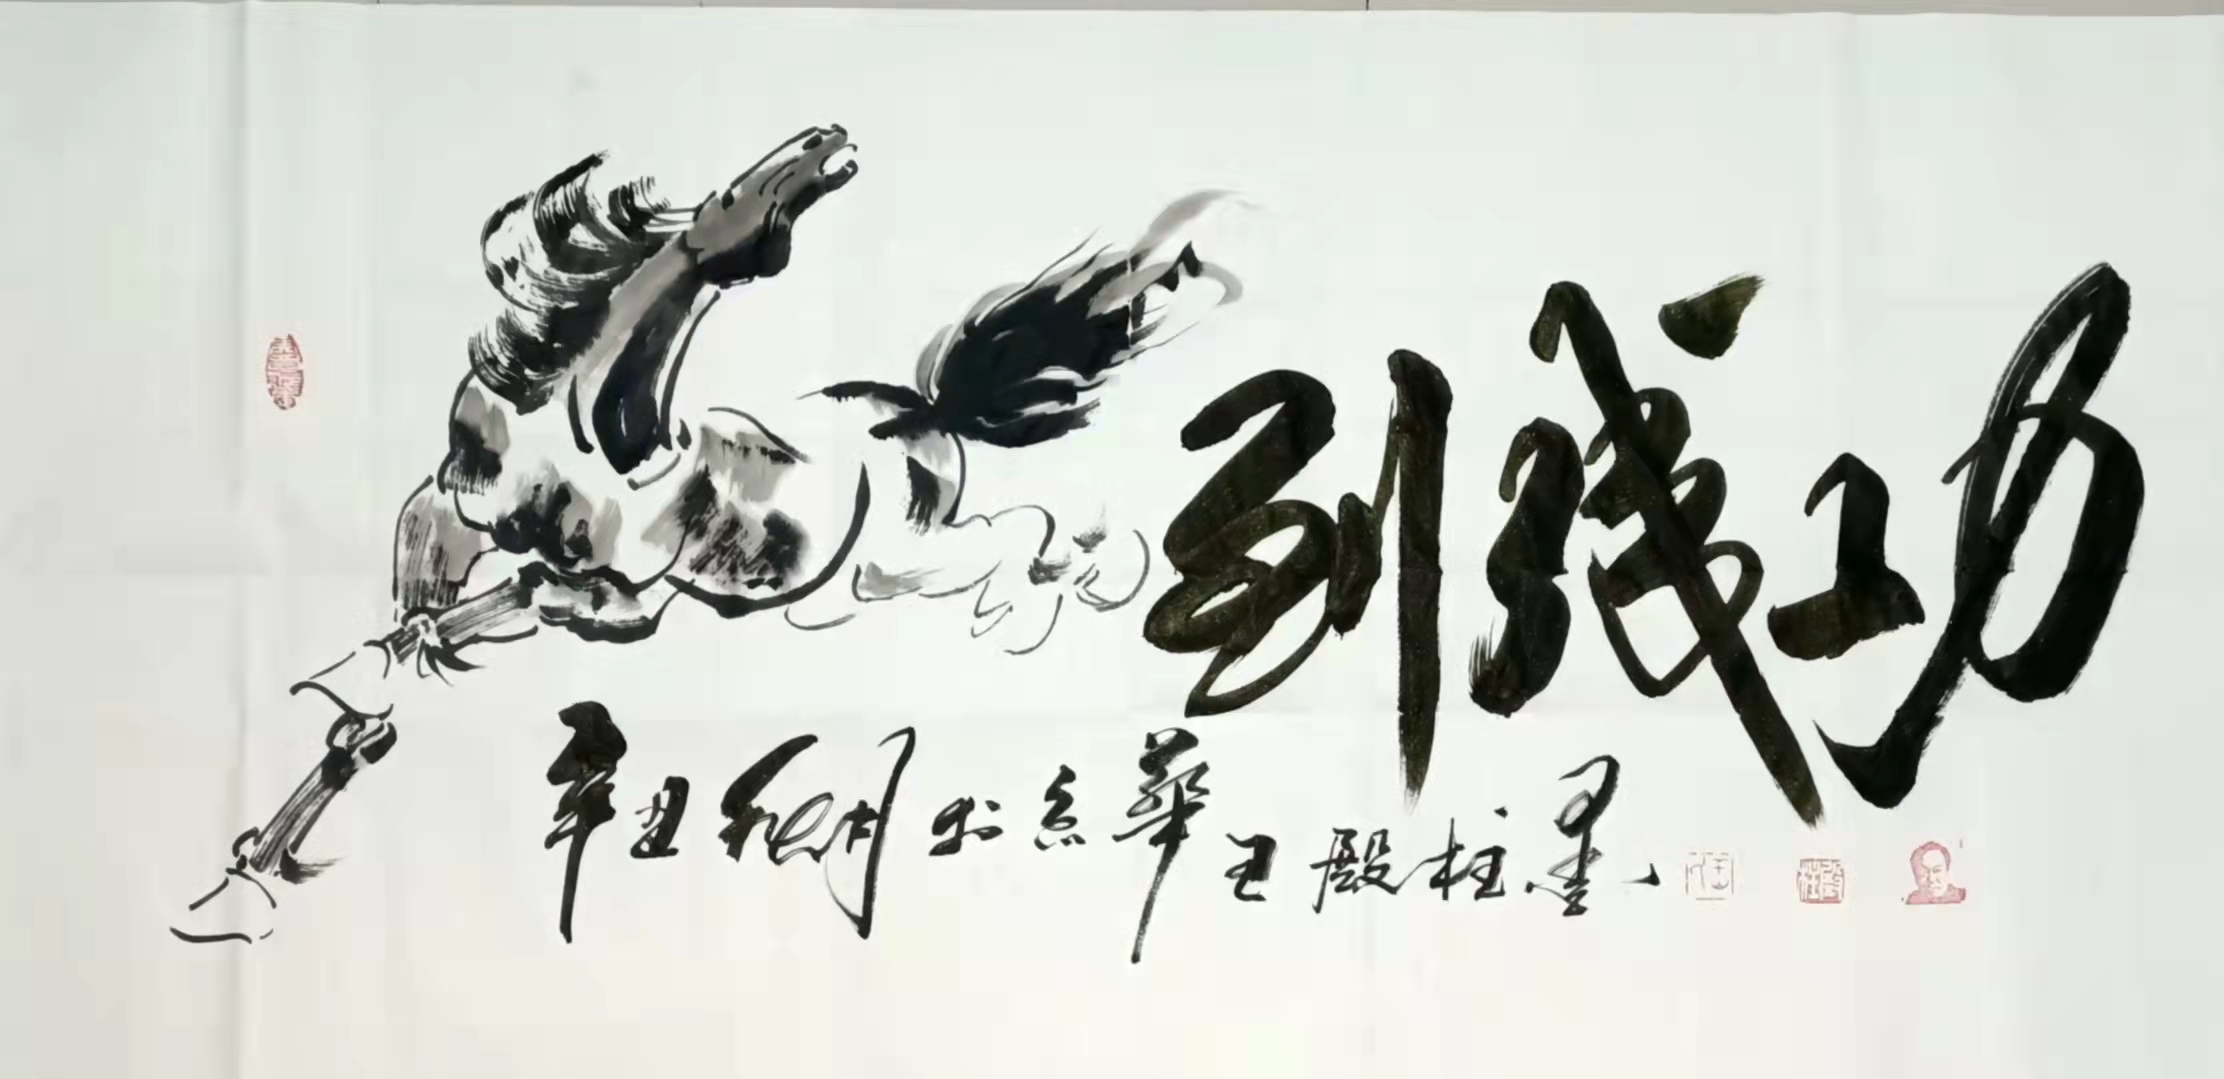 到成功
辛丑秋月於京華王殿柱墨
殿柱